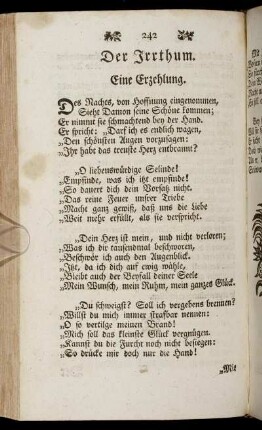 242
Der Irrthum.
Eine Erzehlung.
Des Nachts, von Hoffnung eingenommen,
Sieht Damon seine Schöne kommen;
Er nimmt sie schmachtend bey der Hand.
Er spricht: „Darf ich es endlich wagen,
„Den schönsten Augen vorzusagen:
„Ihr habt das treuste Herz entbrannt?
„O liebenswürdige Selinde!
„Empfinde, was ich itzt empfinde!
„So dauert dich dein Vorsatz nicht.
„Das reine Feuer unsrer Triebe
„Macht ganz gewiß, daß uns die Liebe
„Weit mehr erfüllt, als sie verspricht.
„Dein Herz ist mein, und nicht verloren;
„Was ich dir tausendmal beschworen,
„Beschwör ich auch den Augenblick.
„Itzt, da ich dich auf ewig wähle,
„Bleibt auch der Beyfall deiner Seele
„Mein Wunsch, mein Ruhm, mein ganzes Glück.
„Du schweigst? Soll ich vergebens brennen?
„Willst du mich immer strafbar nennen:
„O so vertilge meinen Brand!
„Mich soll das kleinste Glück vergnügen.
„Kannst du die Furcht noch nicht besiegen:
„So drücke mir doch nur die Hand!
„Mit